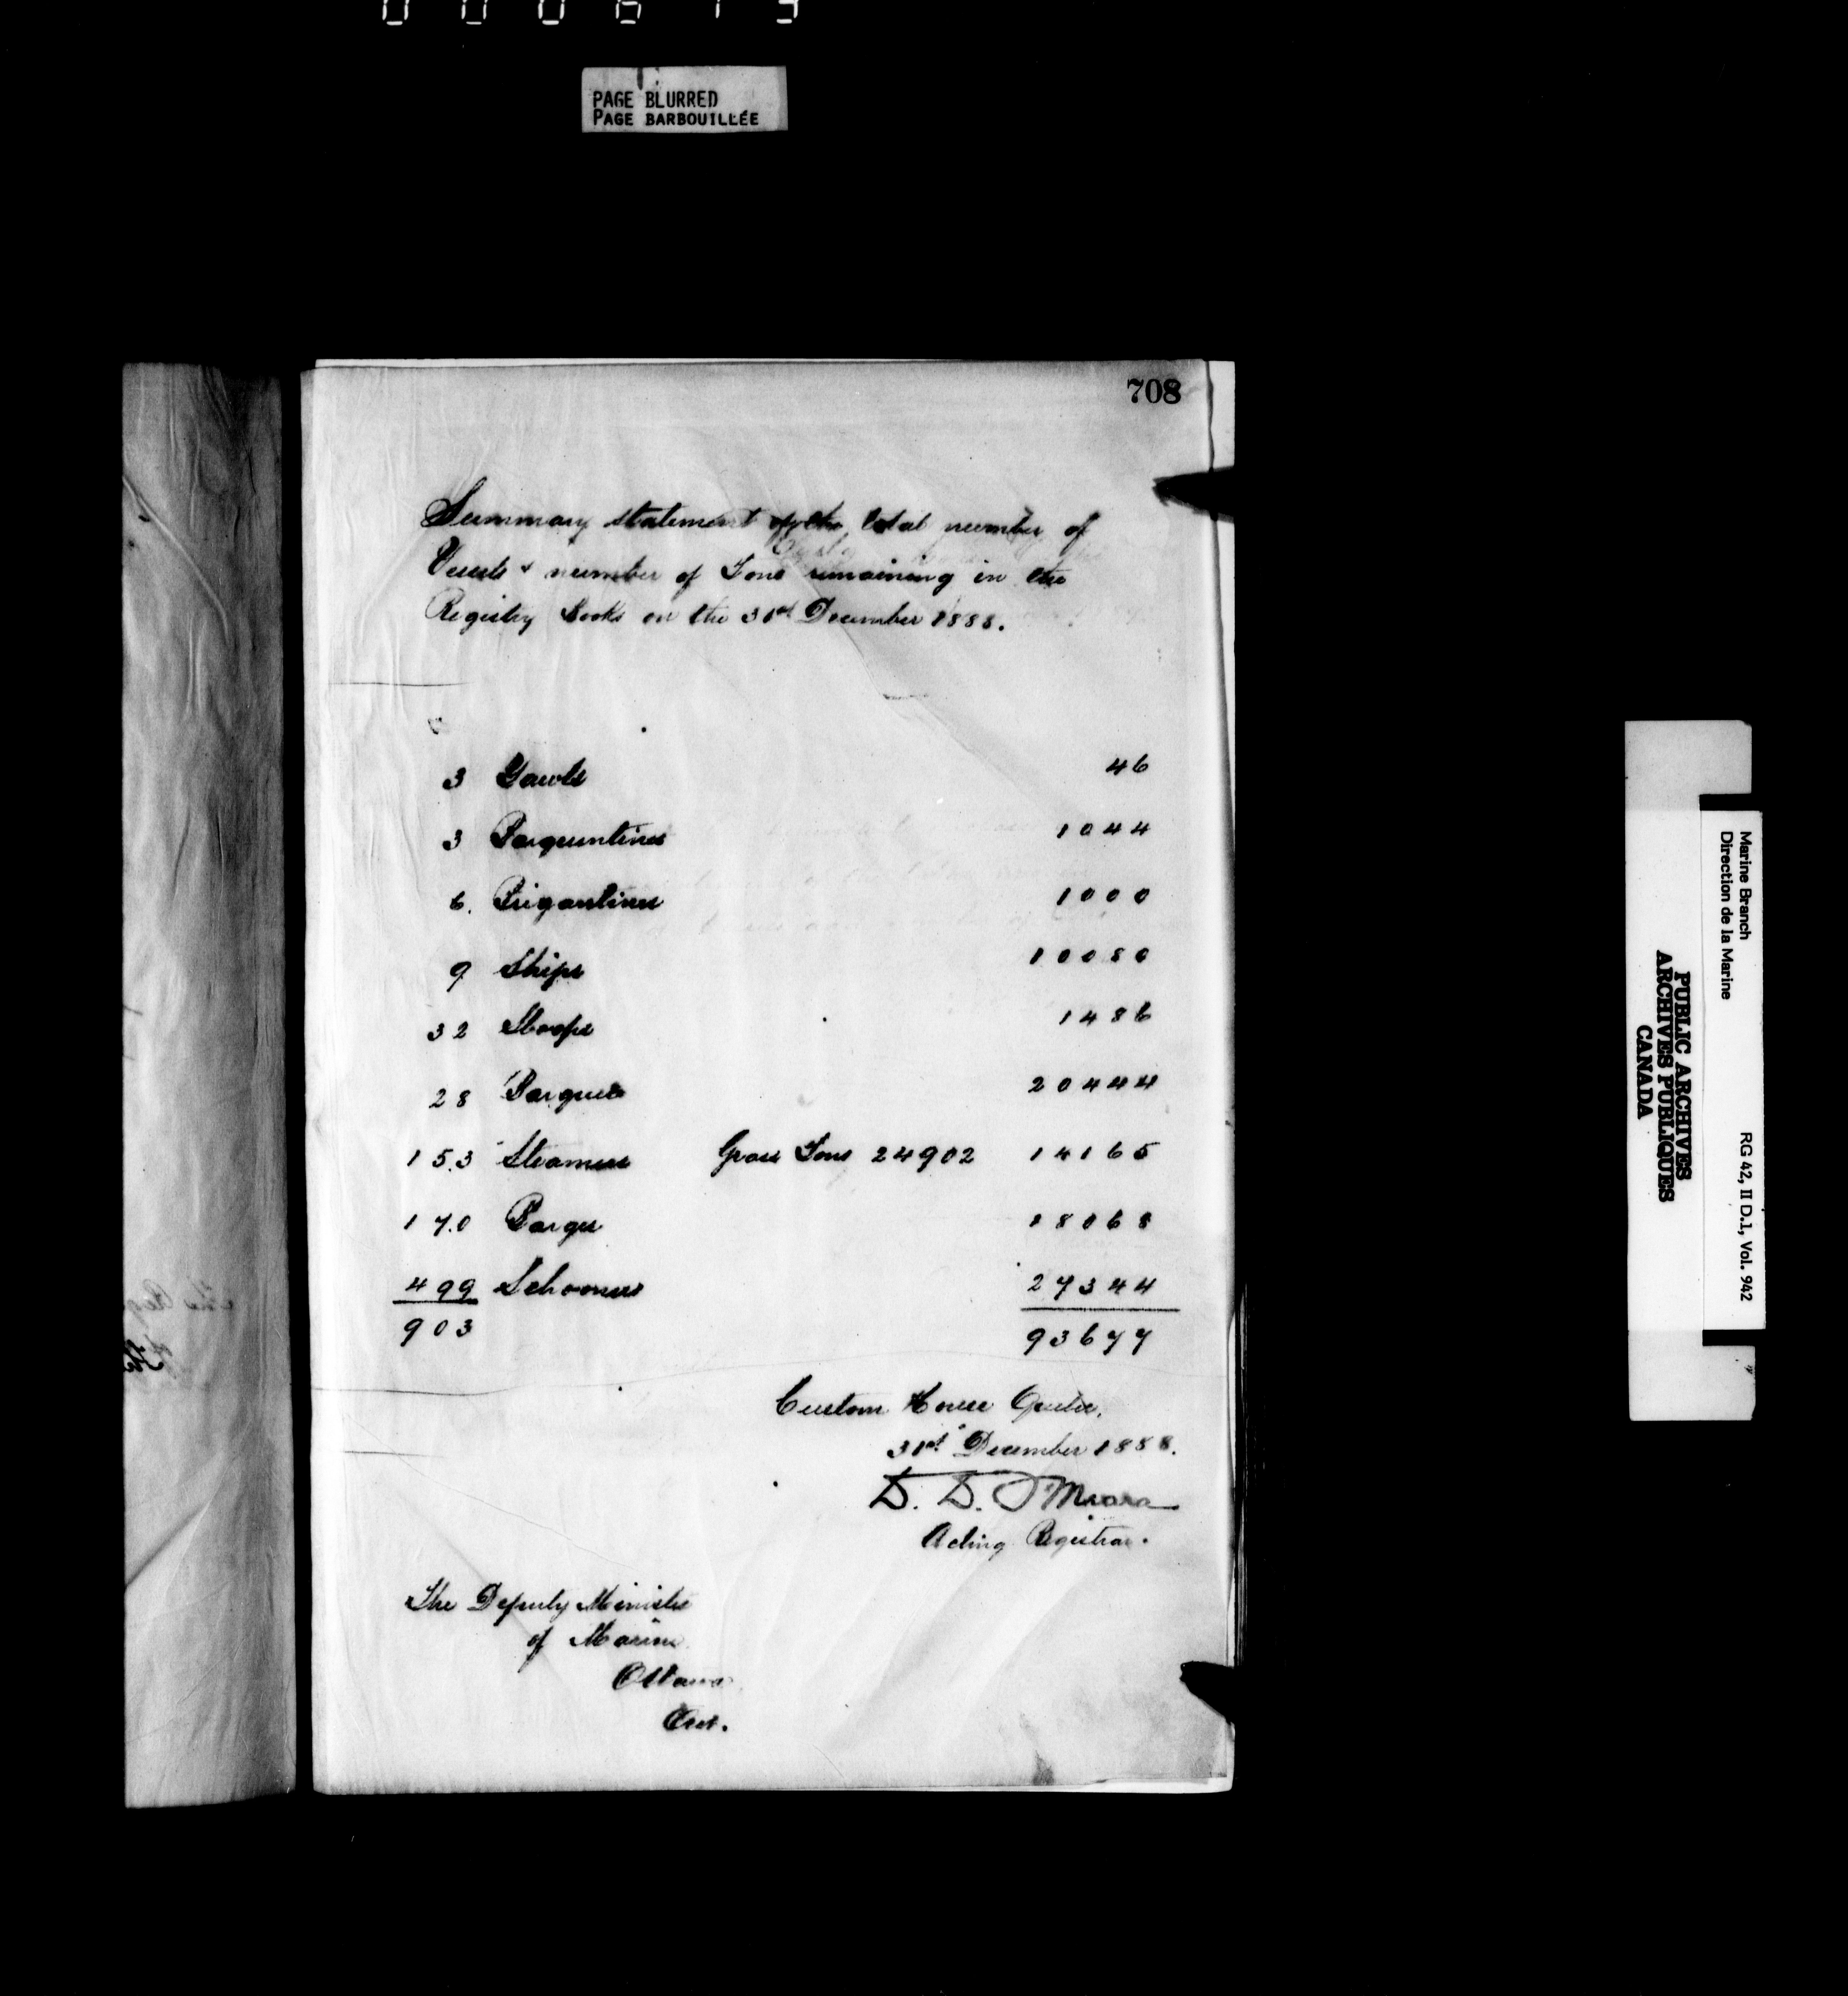 PAGE BLURRED
PAGE BARBOUILLÉE
708
Summary statement of the total number of
Vessels & number of Tons remaining in the
Registry Books on the 31st December 1888.
3 Yawls 46
3 Barquentines 1044
6. Brigantines 1000
9 Ships 10080
32 Sloops 1486
28 Barques 20444
153 Steamers Gross Tons 24902 14165
170 Barges 18068
499 Schooners 27344
903 93677
Custom House Quebec.
31st December 1888.
D. D. O'Meara
Acting Registrar.
The Deputy Minister
of Marine
Ottawa
Ont.
Marine Branch
Direction de la Marine
RG 42, II D.1, Vol. 942
PUBLIC ARCHIVES
ARCHIVES PUBLIQUES
CANADA